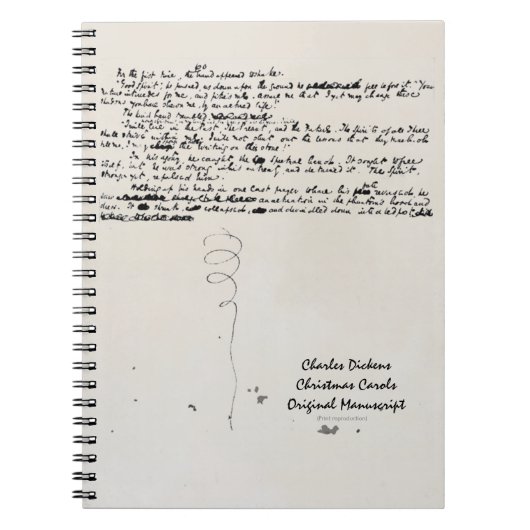 For the first time, the hand appeared to shake.
"Good Spirit," he pursued, as down upon the ground he fell before it: "Your
nature intercedes for me, and pities me. Assure me that I yet may change these
shadows you have shewn me, by an altered life!"
The kind hand trembled.
live in the Past, the Present, and the Future. The Spirits of all Three
shall strive within me. I will not shut out the lessons that they teach. Oh
tell me I may sponge away the writing on this stone!"
In his agony, he caught the spectral hand. It sought to free
itself, but he was strong in his entreaty, and detained it. The Spirit,
stronger yet, repulsed him.
Holding up his hands in one last prayer to have his fate reversed, he
saw an alteration in the phantom's hood and
dress. It shrunk, collapsed, and dwindled down into a bedpost.
Charles Dickens
Christmas Carols
Original Manuscript
(Print reproduction)